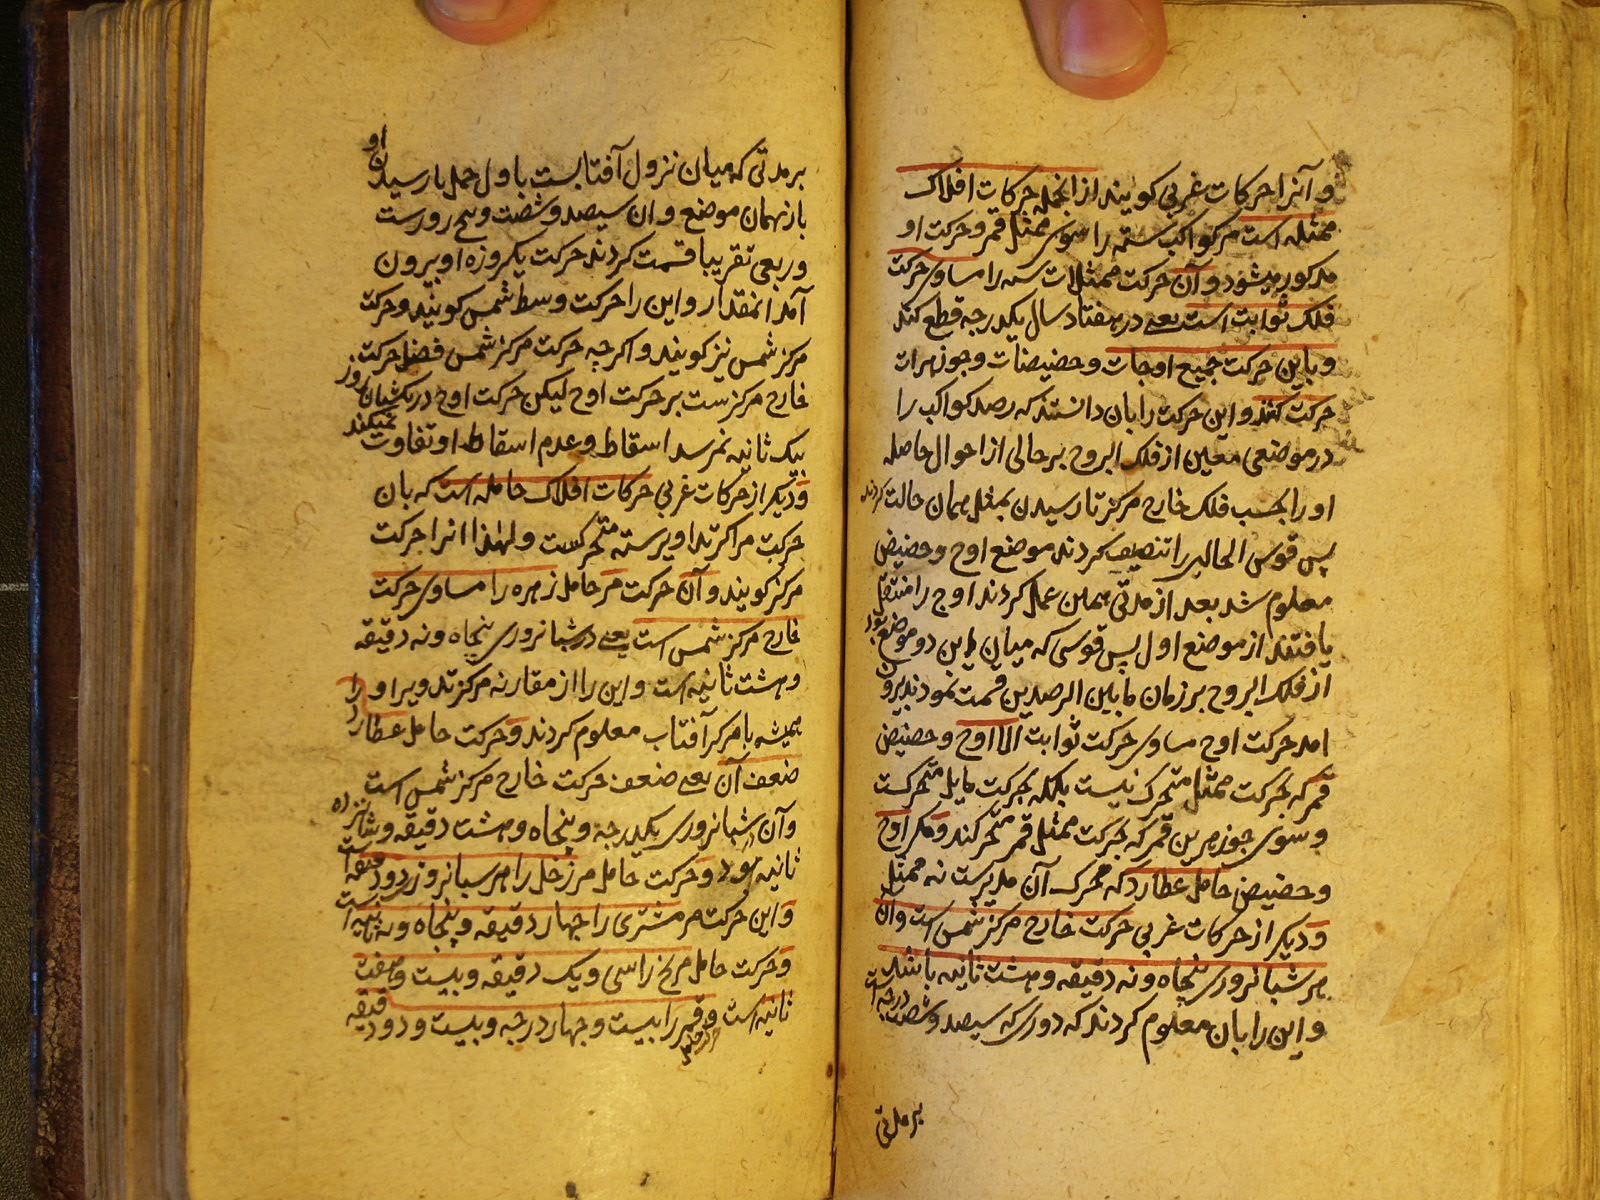 و آنرا حرکات غربی کویند از انجمله حرکات افلاک
ممثله است مر کواکب سته را سوی ممثل قمر و حرکت او
مذکور میشود و آن حرکت ممثلات سته را مساوی حرکت
فلک ثوابت است یعنی در هفتاد سال یکدرجه قطع کند
و باین حرکت جمیع اوجات و حضیضات و جوزهرات
حرکت کنند و این حرکت را بان دانستند که رصد کواکب را
در موضعی معین از فلک البروج بر حالی از احوال حاصله
او را بحسب فلک خارج مرکز تا رسیدن بمثل همان حالت کردند
پس قوس الحالین را تنصیف کردند موضع اوج و حضیض
معلوم شد بعد از مدتی همین عمل کردند اوج را منتقل
یافتند از موضع اول پس قوسی که میان این دو موضع بود
از فلک البروج بر زمان مابین الرصدین قسمت نمودند بیرون
امد حرکت اوج مساوی حرکت ثوابت الا اوج و حضیض
قمر که بحرکت ممثل متحرک نیست بلکه بحرکت مایل متحرکست
و سوی جوزهرین قمر که بحرکت ممثل قمر متحرکند و مکر اوج
و حضیض حامل عطارد که محرک آن مدیرست نه ممثل
و دیکر از حرکات غربی حرکت خارج مرکز شمس است و آن
مر شبانروزی پنجاه و نه دقیقه و هشت ثانیه باشد
و این را بان معلوم کردند که دوری که سیصد و شصت درجه است
بر مدتی
بر مدتی که میان نزول آفتابست باول حمل یا رسیدن او
باز بهمان موضع و ان سیصد و شصت و پنج روزست
و ربعی تقریبا قسمت کردند حرکت یکروزه او بیرون
آمد انمقدار و این را حرکت وسط شمس کویند و حرکت
مرکز شمس نیز کویند و اکرچه حرکت مرکز شمس فضل حرکت
خارج مرکزست بر حرکت اوج لیکن حرکت اوج در یکشبانروز
بیک ثانیه نمیرسد اسقاط و عدم اسقاط او تفاوت نمیکند
و دیکر از حرکات غربی حرکات افلاک حامله است که بان
حرکت مراکز تداویر سته متحرکست و لهذا انرا حرکت
مرکز کویند و آن حرکت مر حامل زهره را مساوی حرکت
خارج مرکز شمس است یعنی در شبانروزی پنجاه و نه دقیقه
و هشت ثانیه است و این را از مقارنه مرکز تدویر او را
همیشه با مرکز آفتاب معلوم کردند و حرکت حامل عطارد
ضعف آن یعنی ضعف حرکت خارج مرکز شمس است
و آن شبانروزی یکدرجه و پنجاه و هشت دقیقه و شانزده
ثانیه بود و حرکت حامل مر زحل را هر شبانروز دو دقیقه است
و این حرکت مر مشتری را چهار دقیقه و پنجاه و نه ثانیه است
و حرکت حامل مریخ را سی و یک دقیقه و بیست و هفت
ثانیه است و حرکت حامل قمر را بیست و چهار درجه و بیست و دو دقیقه